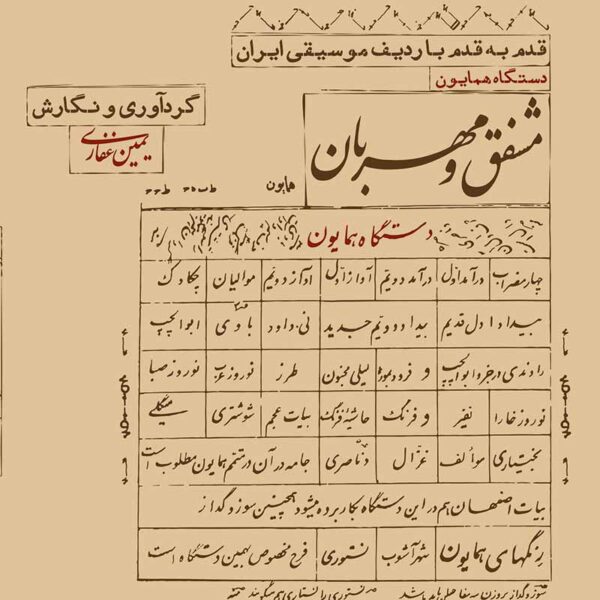 قدم به قدم با ردیف موسیقی ایران
دستگاه همایون
مشفق و مهربان
گردآوری و نگارش
یمین غفاری
همایون
دستگاه همایون
چهار مضراب درآمد اول درآمد دویم آواز اول آواز دویم موالیان چکاوک
بیداد اول قدیم بیداد دویم جدید نی داود باوی ابوالچپ
راوندی در جزو ابوالچپ لیلی مجنون طرز نوروز عرب نوروز صبا
نوروز خارا نفیر و فرنگ حاشیه فرنگ بیات عجم شوشتری میگلی
بختیاری موالف غزال دناصری جامه در آن در متمم همایون مطلوب است
بیات اصفهان هم در این دستگاه بکار برده میشود همچنین سوز و گداز
رنگهای همایون شهر آشوب نستوری فرح مخصوص بهمین دستگاه است